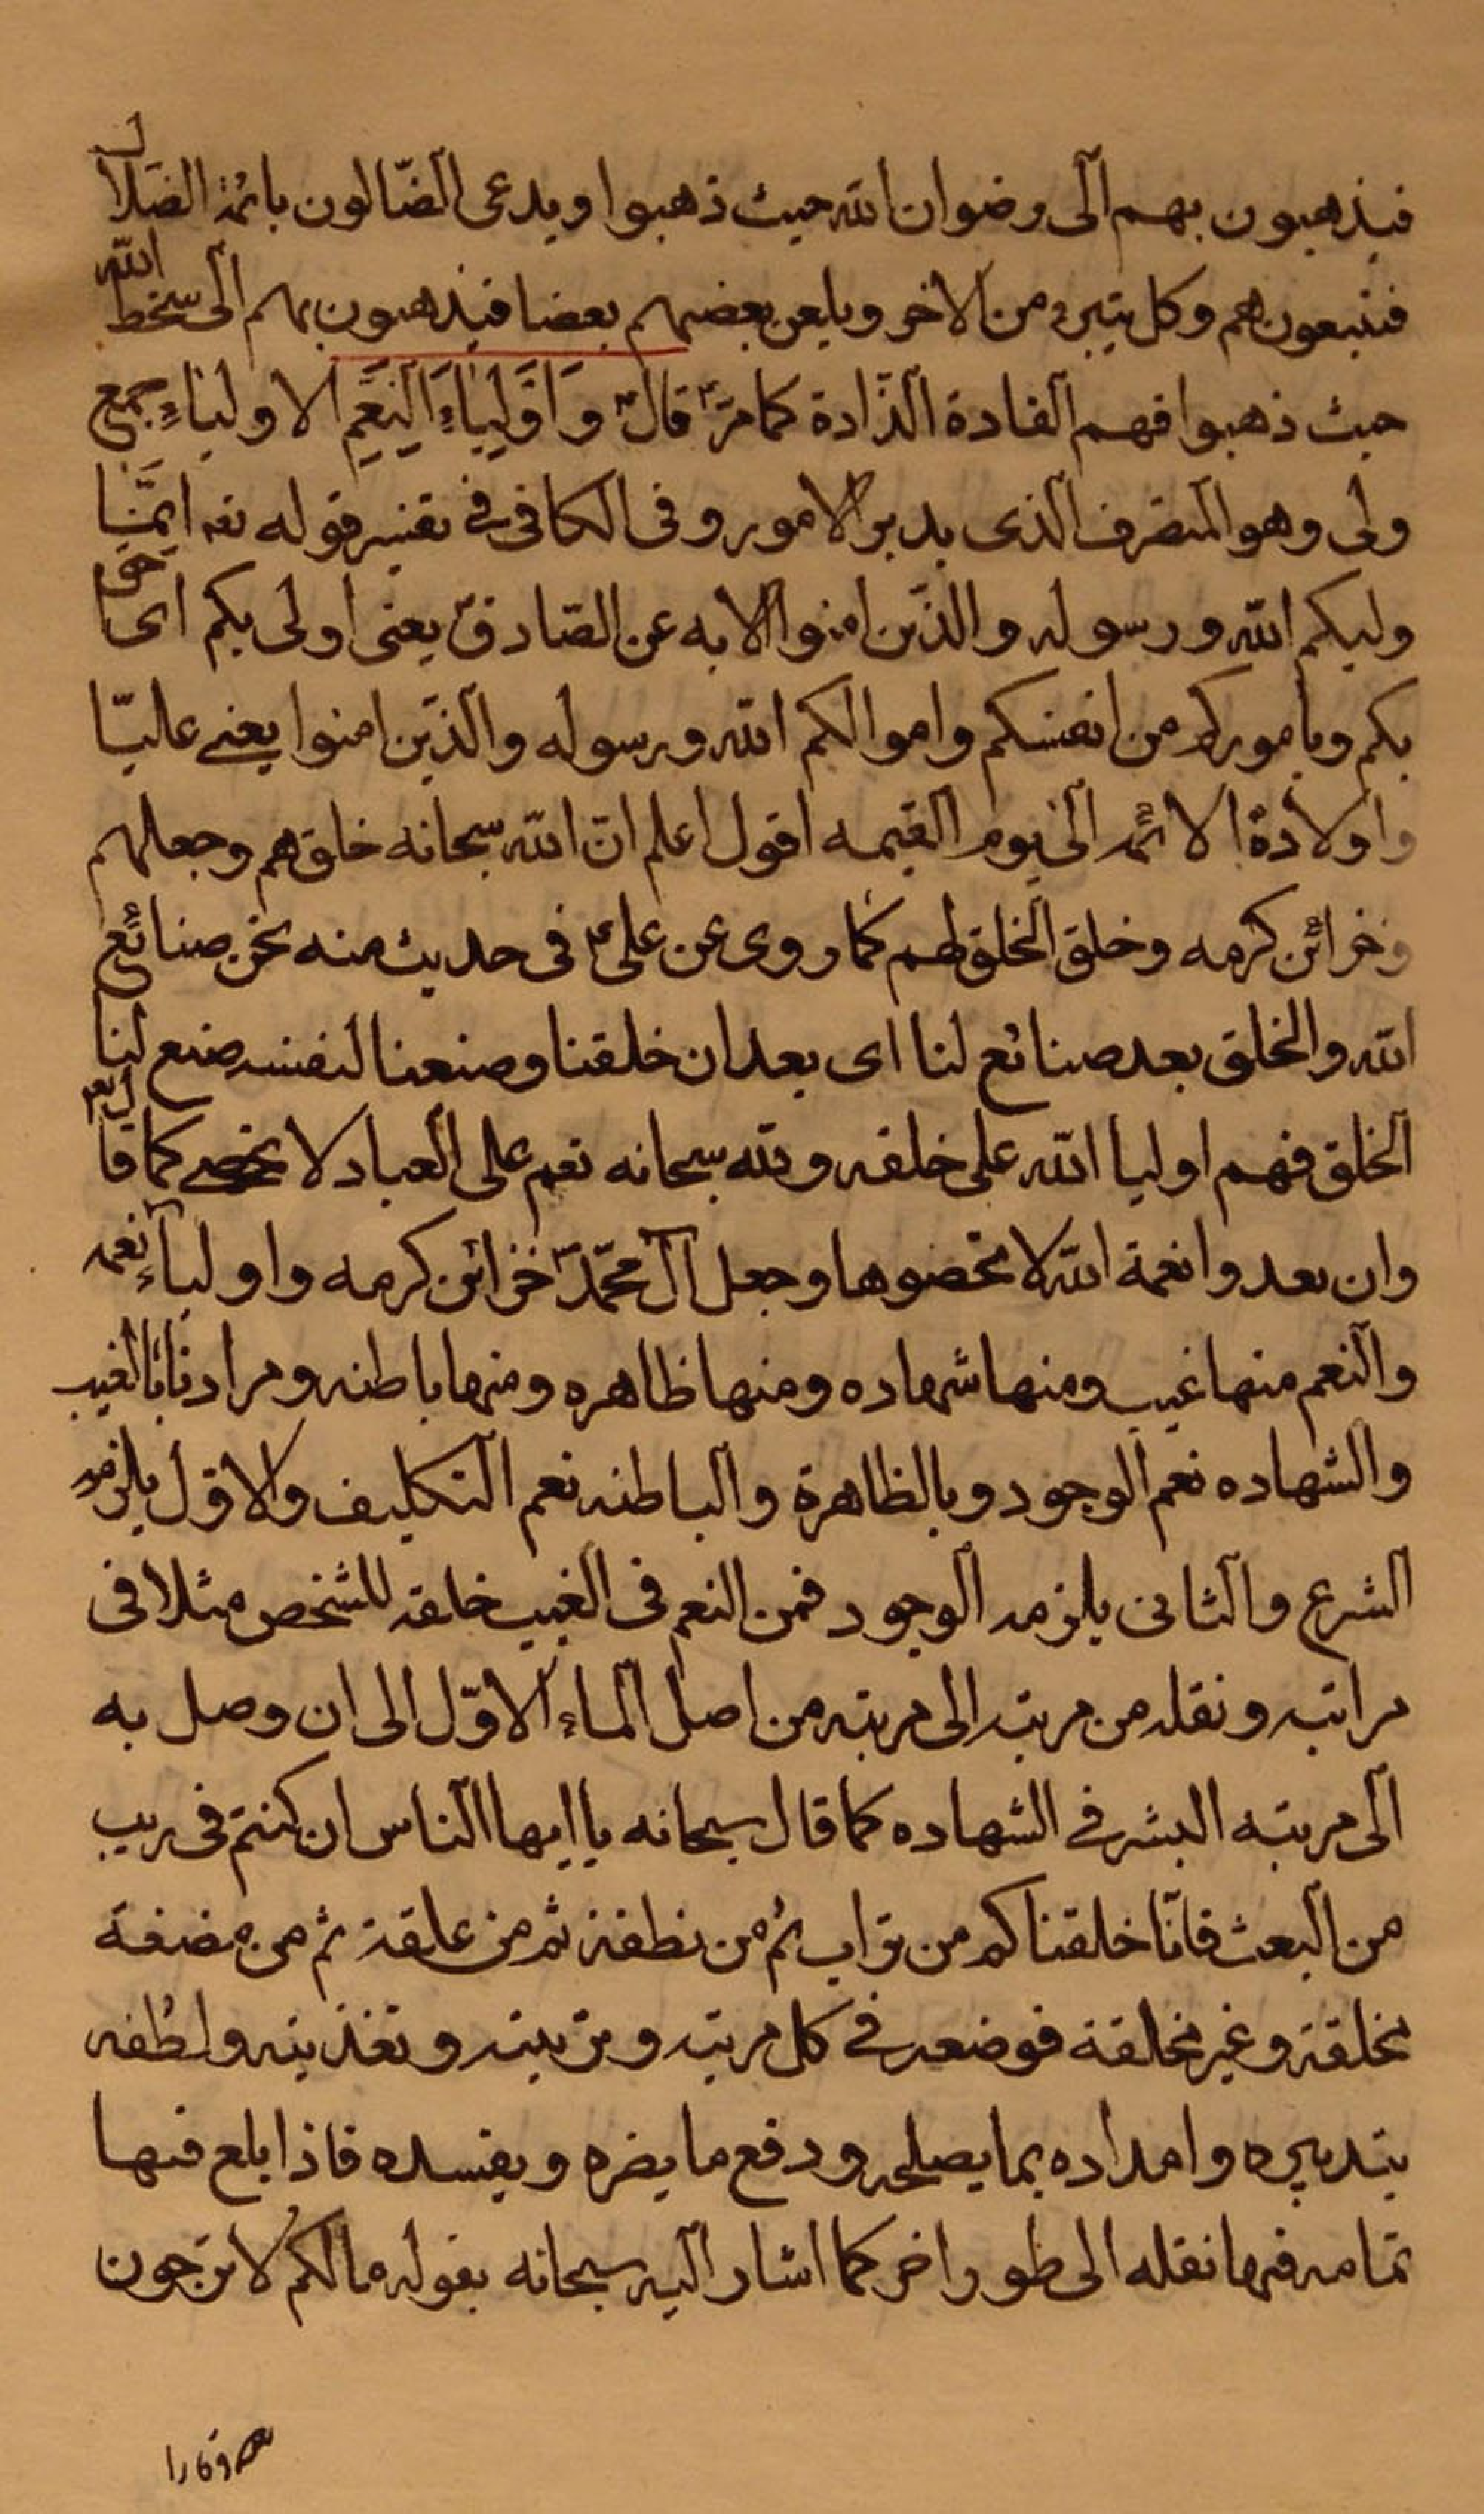 فيذهبون بهم الى رضوان الله حيث ذهبوا ويدعى الضّالون بائمة الضلال
فيتبعونهم وكل يتبرء من الاخر ويلعن بعضهم بعضا فيذهبون بهم الى سخط الله
حيث ذهبوا فهم القادة الذّادة كما مرّ قال ع وَاَوْلِيَاءَ النِعَمِ الاولياء جمع
ولى وهو المتصرف الذى يدبر الامور وفى الكافى فى تفسير قوله تعه اِنَّمَا
وليكم الله ورسوله والذين امنوا الايه عن الصّادق ع يعنى اولى بكم اى احق
بكم وباموركم من انفسكم واموالكم الله ورسوله والذين امنوا يعنى عليّا
واولادة الائمة الى يوم القيمه اقول اعلم انّ الله سبحانه خلقهم وجعلهم
خزائن كرمه وخلق الخلق لهم كما روى عن على ع فى حديث منه نحن صنائع
الله والخلق بعد صنائع لنا اى بعد ان خلقنا وصنعنا لنفسه صنع لنا
الخلق فهم اوليا الله على خلقه ولله سبحانه نعم على العباد لا تحصى كما قال تعه
وان تعدوا نعمة الله لا تحصوها وجعل آل محمّد ص خزائن كرمه واولياء نعمه
والنعم منها غيب ومنها شهاده ومنها ظاهره ومنها باطنه ومرادنا بالغيب
والشهاده نعم الوجود وبالظاهرة والباطنه نعم التكليف والاول يلزمه
الشرع والثانى يلزمه الوجود فمن النعم فى الغيب خلقه للشخص مثلا فى
مراتبه ونقله من مرتبه الى مرتبه من اصل الماء الاوّل الى ان وصل به
الى مرتبه البشر فى الشهاده كما قال سبحانه يا ايها الناس ان كنتم فى ريب
من البعث فانّا خلقناكم من تراب ثم من نطفة ثم من علقة ثم من مضغة
مخلقة وغير مخلقة فوضعه فى كل مرتبه وتربيته وتغذيته ولطفه
بتدبيره وامداده بما يصلحه ودفع ما يضره ويفسده فاذا بلغ فيها
تمامه فيها نقله الى طور اخر كما اشار اليه سبحانه بقوله مالكم لا ترجون
لله وقارا